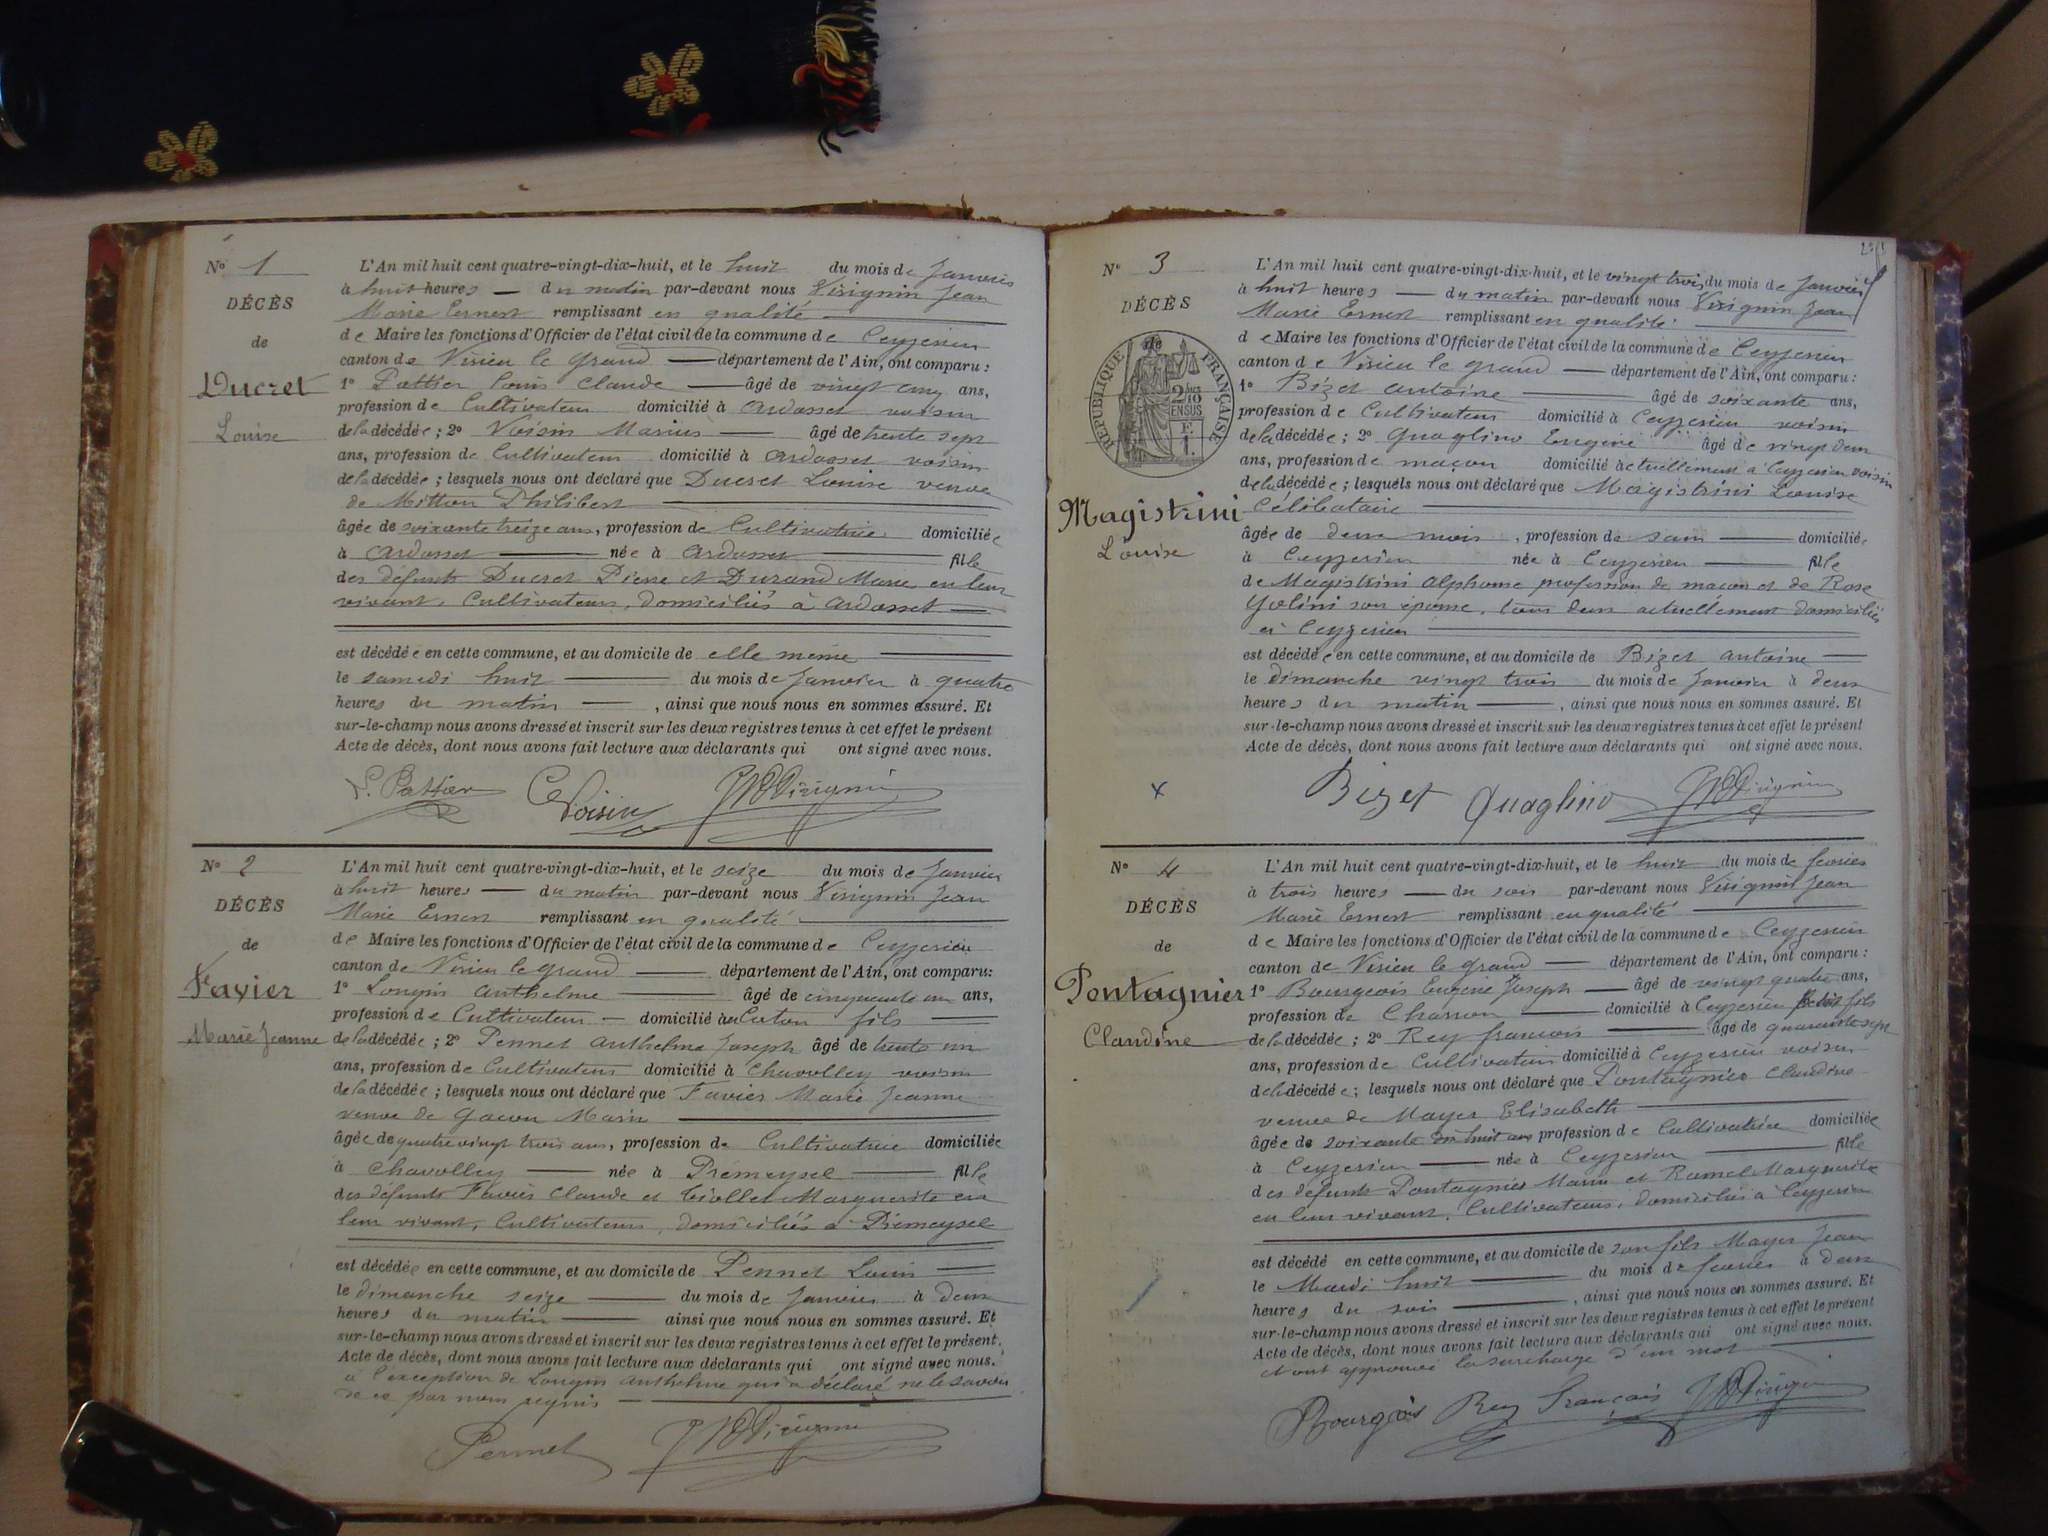 N° 1
DÉCÈS
de
Ducret
Louise
L'An mil huit cent quatre-vingt-dix-huit, et le huit du mois de Janvier
à huit heures — du matin par-devant nous Virignin Jean
Marie Ernest remplissant en qualité
de Maire les fonctions d'Officier de l'état civil de la commune de Ceyzerieu
canton de Virieu le Grand — département de l'Ain, ont comparu :
1° Pattier Louis Claude — âgé de vingt cinq ans,
profession de Cultivateur domicilié à Ardosset voisin
de la décédée ; 2° Voisin Marius — âgé de trente sept
ans, profession de Cultivateur domicilié à Ardosset voisin
de la décédée ; lesquels nous ont déclaré que Ducret Louise veuve
de Mitton Philibert
âgée de soixante treize ans, profession de Cultivatrice domiciliée
à Ardosset — née à Ardosset — fille
des défunts Ducret Pierre et Durand Marie en leur
vivant, Cultivateurs, domiciliés à Ardosset —
est décédée en cette commune, et au domicile de elle même
le samedi huit — du mois de Janvier à quatre
heures du matin — , ainsi que nous nous en sommes assuré. Et
sur-le-champ nous avons dressé et inscrit sur les deux registres tenus à cet effet le présent
Acte de décès, dont nous avons fait lecture aux déclarants qui ont signé avec nous.
L. Pattier Voisin Virignin
N° 2
DÉCÈS
de
Favier
Marie Jeanne
L'An mil huit cent quatre-vingt-dix-huit, et le seize du mois de Janvier
à huit heures — du matin par-devant nous Virignin Jean
Marie Ernest remplissant en qualité
de Maire les fonctions d'Officier de l'état civil de la commune de Ceyzerieu
canton de Virieu le grand — département de l'Ain, ont comparu:
1° Longin Anthelme — âgé de cinquante un ans,
profession de Cultivateur — domicilié à fils
de la décédée ; 2° Pennet Anthelme Joseph âgé de trente un
ans, profession de Cultivateur domicilié à Chavolley voisin
de la décédée ; lesquels nous ont déclaré que Favier Marie Jeanne
veuve de Marin
âgée de quatre vingt trois ans, profession de Cultivatrice domiciliée
à Chavolley — née à Prémeysel — fille
des défunts Favier Claude et Marguerite en
leur vivant, Cultivateurs, domiciliés à Prémeysel
est décédée en cette commune, et au domicile de Pennet Louis
le dimanche seize — du mois de Janvier à deux
heures du matin — ainsi que nous nous en sommes assuré. Et
sur-le-champ nous avons dressé et inscrit sur les deux registres tenus à cet effet le présent.
Acte de décès, dont nous avons fait lecture aux déclarants qui ont signé avec nous.
à l'exception de Longin Anthelme qui a déclaré ne le savoir
de ce par nous requis —
Pennet Virignin
N° 3
DÉCÈS
de
RÉPUBLIQUE FRANÇAISE
2/10
EN SUS
F.
1.
Magistrini
Louise
L'An mil huit cent quatre-vingt-dix-huit, et le vingt trois du mois de Janvier
à huit heures — du matin par-devant nous Virignin Jean
Marie Ernest remplissant en qualité
de Maire les fonctions d'Officier de l'état civil de la commune de Ceyzerieu
canton de Virieu le grand — département de l'Ain, ont comparu :
1° Bizet Antoine — âgé de soixante ans,
profession de Cultivateur domicilié à Ceyzerieu voisin
de la décédée ; 2° Quaglino Eugène âgé de vingt deux
ans, profession de maçon domicilié actuellement à Ceyzerieu voisin
de la décédée ; lesquels nous ont déclaré que Magistrini Louise
Célibataire
âgée de deux mois , profession de sans — domiciliée
à Ceyzerieu née à Ceyzerieu — fille
de Magistrini Alphonse profession de maçon et de Rose
son épouse, tous deux actuellement domiciliés
à Ceyzerieu
est décédée en cette commune, et au domicile de Bizet Antoine —
le dimanche vingt trois du mois de Janvier à deux
heures du matin — , ainsi que nous nous en sommes assuré. Et
sur-le-champ nous avons dressé et inscrit sur les deux registres tenus à cet effet le présent
Acte de décès, dont nous avons fait lecture aux déclarants qui ont signé avec nous.
Bizet Quaglino Virignin
N° 4
DÉCÈS
de
Pontagnier
Claudine
L'An mil huit cent quatre-vingt-dix-huit, et le huit du mois de février
à trois heures — du soir par-devant nous Virignin Jean
Marie Ernest remplissant en qualité
de Maire les fonctions d'Officier de l'état civil de la commune de Ceyzerieu
canton de Virieu le grand — département de l'Ain, ont comparu :
1° Bourgeois Eugène Joseph — âgé de vingt quatre ans,
profession de Charron — domicilié à Ceyzerieu petit fils
de la décédée ; 2° Rey françois — âgé de quarante sept
ans, profession de Cultivateur domicilié à Ceyzerieu voisin
de la décédée ; lesquels nous ont déclaré que Pontagnier Claudine
veuve de Mayer Elisabeth
âgée de soixante dix huit ans profession de Cultivatrice domiciliée
à Ceyzerieu — née à Ceyzerieu — fille
des défunts Pontagnier Marin et Ramel Marguerite
en leur vivant, Cultivateurs, domiciliés à Ceyzerieu
est décédé en cette commune, et au domicile de son fils Mayer Jean
le Mardi huit — du mois de février à deux
heures du soir — , ainsi que nous nous en sommes assuré. Et
sur-le-champ nous avons dressé et inscrit sur les deux registres tenus à cet effet le présent
Acte de décès, dont nous avons fait lecture aux déclarants qui ont signé avec nous.
et ont approuvé la surcharge d'un mot —
Bourgeois Rey François Virignin